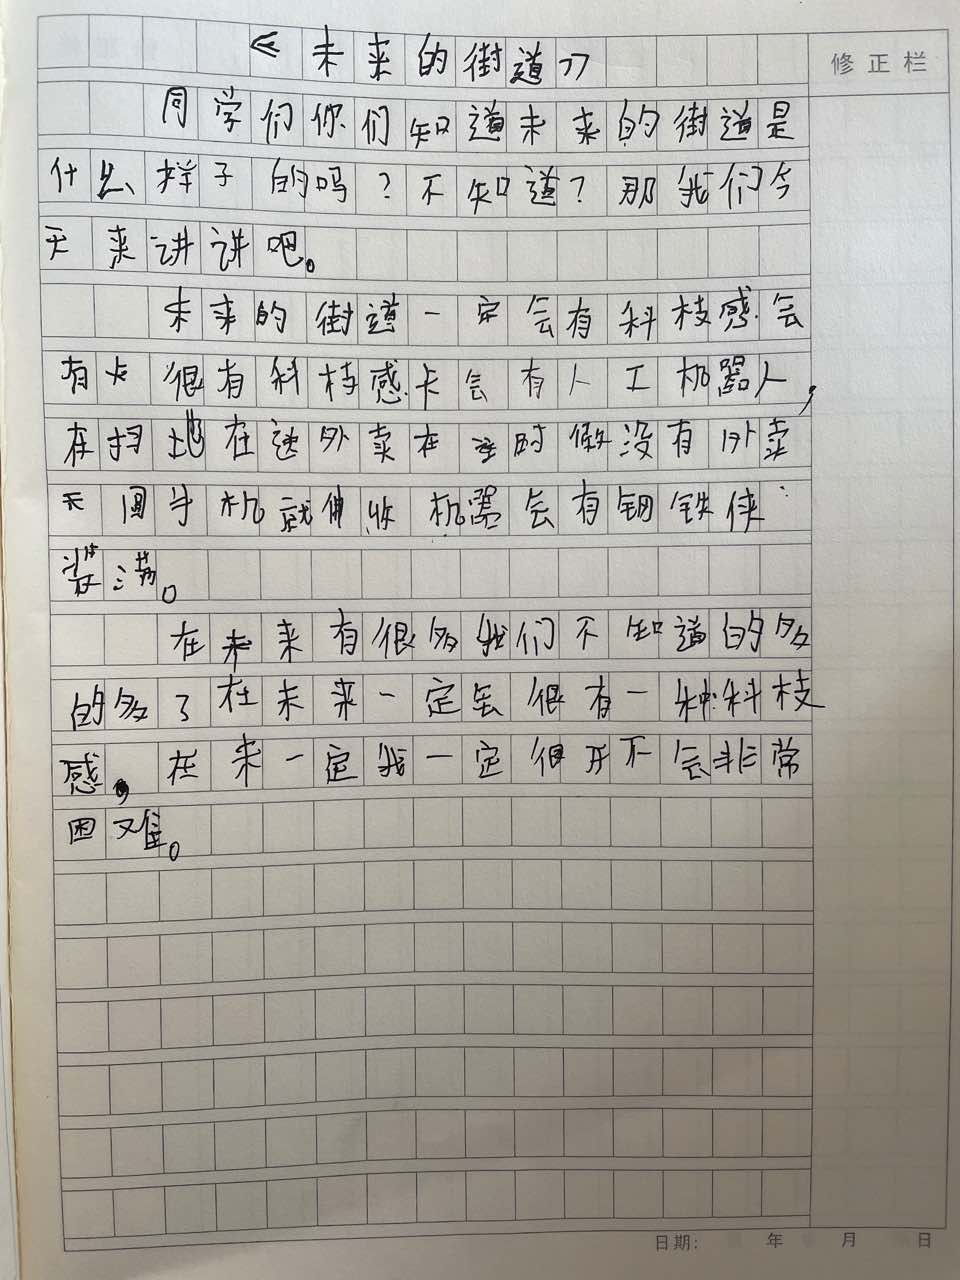 《未来的街道》
修正栏
同学们你们知道未来的街道是
什么样子的吗？不知道？那我们今
天来讲讲吧。
未来的街道一定会有科枝感会
有卡很有科档感卡会有人工机器人，
在扫地在送外卖在 时做没有外卖
天 手机就 收机器会有钢铁侠
装满。
在未来有很多我们不知道的多
的多了在未来一定会很有一种科枝
感，在未一定我一定很开不会非常
困难。
日期： 年 月 日